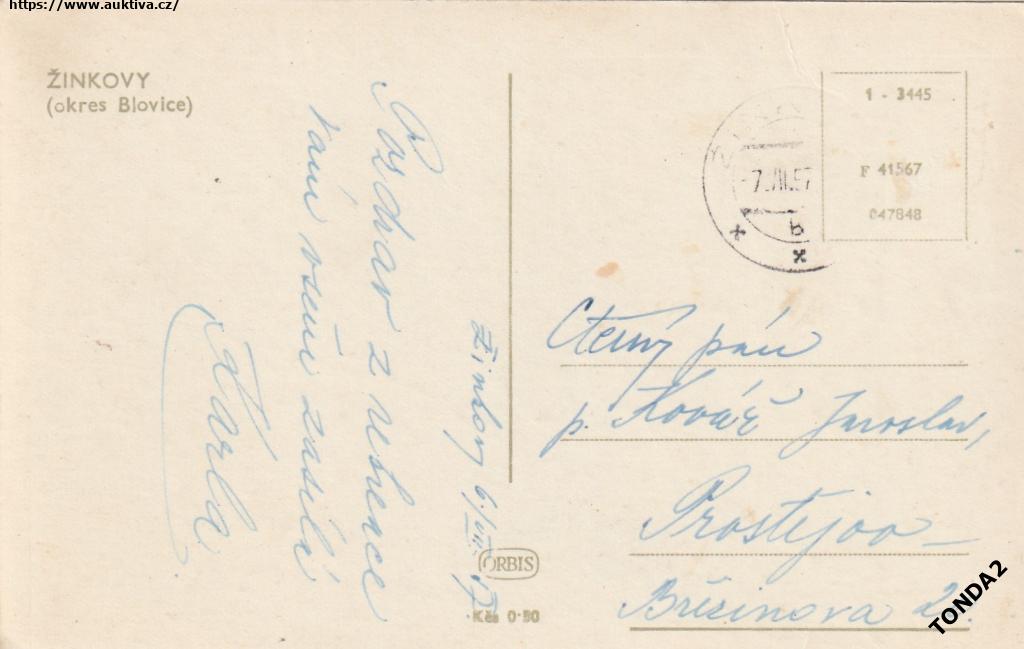 https://www.auktiva.cz/
ŽINKOVY
(okres Blovice)
Žinkovy 6./VIII.
Pozdrav z
vám všem zasílá
Karla
1 - 3445
F 41567
047848
-7.VIII.57
b
Ctěný pán
p. Kovář Jaroslav,
Prostějov -
Březinova 2.
ORBIS
Kčs 0·80
TONDA2